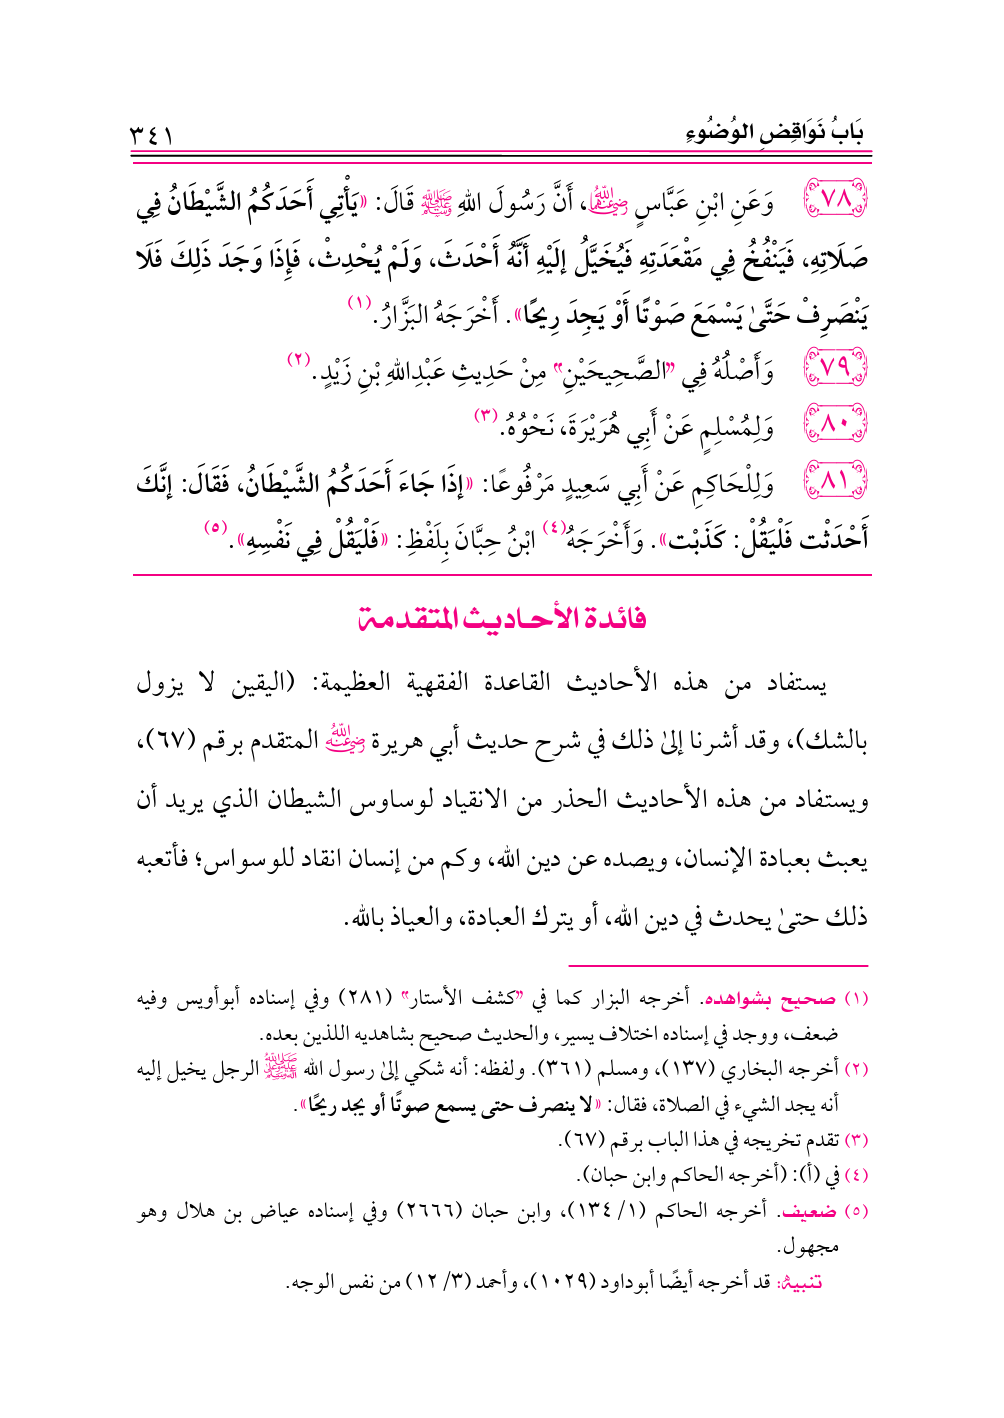 بَابُ نَوَاقِضِ الوُضُوءِ ٣٤١
٧٨ وَعَنِ ابْنِ عَبَّاسٍ رضي الله عنهما، أَنَّ رَسُولَ اللهِ ﷺ قَالَ: «يَأْتِي أَحَدَكُمُ الشَّيْطَانُ فِي
صَلَاتِهِ، فَيَنْفُخُ فِي مَقْعَدَتِهِ فَيُخَيَّلُ إلَيْهِ أَنَّهُ أَحْدَثَ، وَلَمْ يُحْدِثْ، فَإِذَا وَجَدَ ذَلِكَ فَلَا
يَنْصَرِفْ حَتَّىٰ يَسْمَعَ صَوْتًا أَوْ يَجِدَ رِيحًا». أَخْرَجَهُ البَزَّارُ.(١)
٧٩ وَأَصْلُهُ فِي "الصَّحِيحَيْنِ" مِنْ حَدِيثِ عَبْدِاللهِ بْنِ زَيْدٍ.(٢)
٨٠ وَلِمُسْلِمٍ عَنْ أَبِي هُرَيْرَةَ، نَحْوُهُ.(٣)
٨١ وَلِلْحَاكِمِ عَنْ أَبِي سَعِيدٍ مَرْفُوعًا: «إذَا جَاءَ أَحَدَكُمُ الشَّيْطَانُ، فَقَالَ: إنَّكَ
أَحْدَثْت فَلْيَقُلْ: كَذَبْت». وَأَخْرَجَهُ(٤) ابْنُ حِبَّانَ بِلَفْظِ: «فَلْيَقُلْ فِي نَفْسِهِ».(٥)
فائدة الأحاديث المتقدمة
يستفاد من هذه الأحاديث القاعدة الفقهية العظيمة: (اليقين لا يزول
بالشك)، وقد أشرنا إلىٰ ذلك في شرح حديث أبي هريرة رضي الله عنه المتقدم برقم (٦٧)،
ويستفاد من هذه الأحاديث الحذر من الانقياد لوساوس الشيطان الذي يريد أن
يعبث بعبادة الإنسان، ويصده عن دين الله، وكم من إنسان انقاد للوسواس؛ فأتعبه
ذلك حتىٰ يحدث في دين الله، أو يترك العبادة، والعياذ بالله.
(١) صحيح بشواهده. أخرجه البزار كما في "كشف الأستار" (٢٨١) وفي إسناده أبوأويس وفيه
ضعف، ووجد في إسناده اختلاف يسير، والحديث صحيح بشاهديه اللذين بعده.
(٢) أخرجه البخاري (١٣٧)، ومسلم (٣٦١). ولفظه: أنه شكي إلىٰ رسول الله ﷺ الرجل يخيل إليه
أنه يجد الشيء في الصلاة، فقال: «لا ينصرف حتى يسمع صوتًا أو يجد ريحًا».
(٣) تقدم تخريجه في هذا الباب برقم (٦٧).
(٤) في (أ): (أخرجه الحاكم وابن حبان).
(٥) ضعيف. أخرجه الحاكم (١/ ١٣٤)، وابن حبان (٢٦٦٦) وفي إسناده عياض بن هلال وهو
مجهول.
تنبيهٌ: قد أخرجه أيضًا أبوداود (١٠٢٩)، وأحمد (٣/ ١٢) من نفس الوجه.